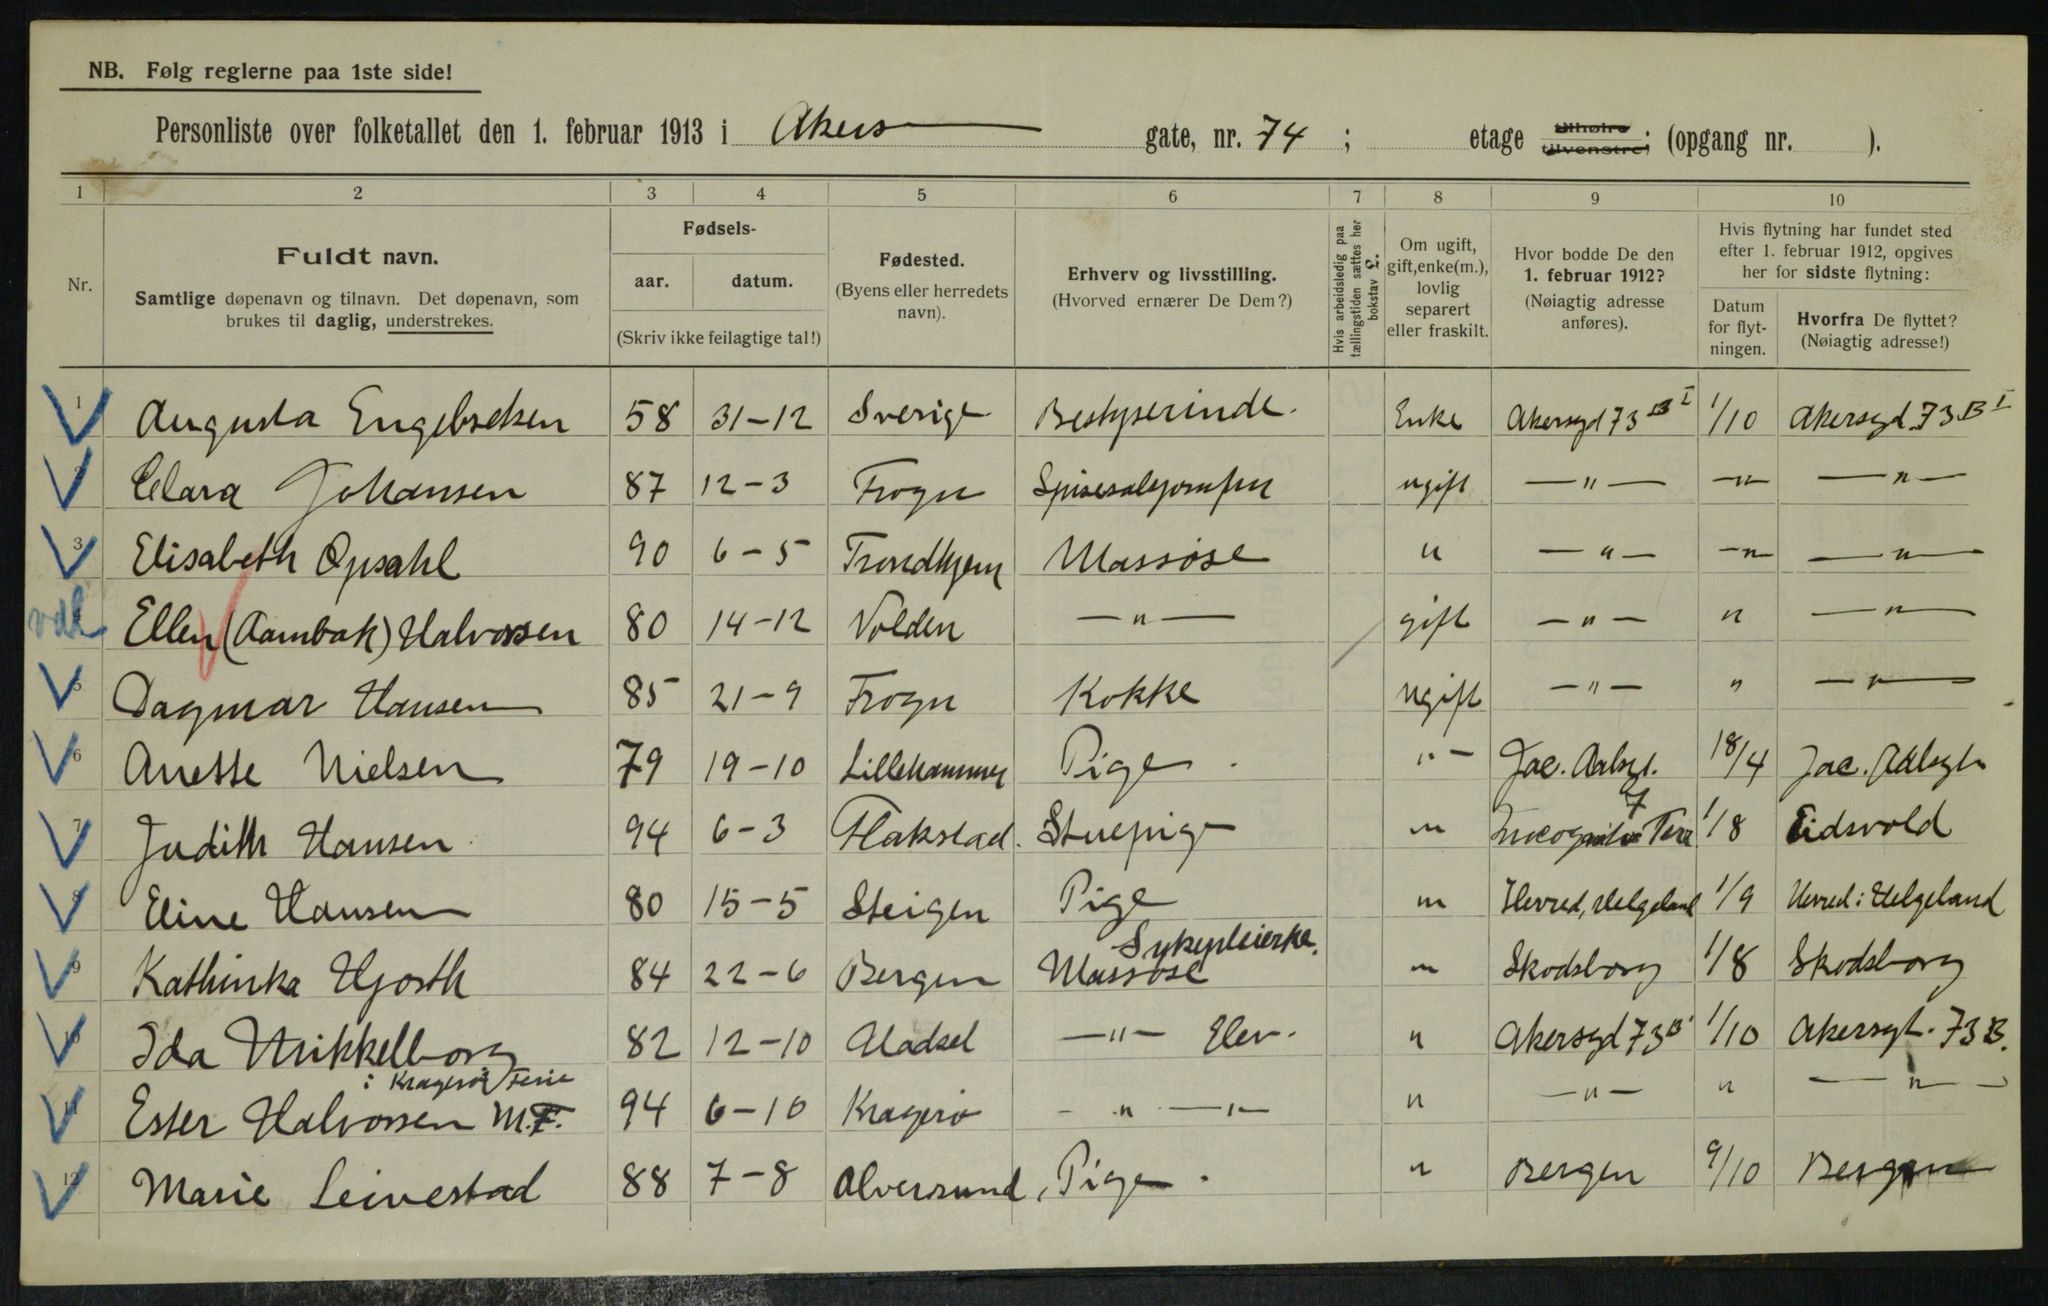 NB. Følg reglerne paa 1ste side!
Personliste over folketallet den 1. februar 1913 i Akers gate, nr. 74 ; etage tilhøire tilvenstre; (opgang nr. ).
1 2 3 4 5 6 7 8 9 10
Nr.
Fuldt navn.
Samtlige døpenavn og tilnavn. Det døpenavn, som
brukes til daglig, understrekes.
Fødsels-
aar. datum.
(Skriv ikke feilagtige tal!)
Fødested.
(Byens eller herredets
navn).
Erhverv og livsstilling.
(Hvorved ernærer De Dem?)
Hvis arbeidsledig paa
tællingstiden sættes her
bokstav L.
Om ugift,
gift, enke(m.),
lovlig
separert
eller fraskilt.
Hvor bodde De den
1. februar 1912?
(Nøiagtig adresse
anføres).
Hvis flytning har fundet sted
efter 1. februar 1912, opgives
her for sidste flytning:
Datum
for flyt-
ningen.
Hvorfra De flyttet?
(Nøiagtig adresse!)
1 Augusta Engebretsen 58 31-12 Sverige Bestyrerinde. Enke Akersgd 73 B I 1/10 Akersgd. 73 B I
2 Clara Johansen 87 12-3 Frogn ugift —"— —"— —"—
3 Elisabeth Opsahl 90 6-5 Trondhjem Massøse " —"— —"— —"—
4 Ellen (Aambak) Halvorsen 80 14-12 Volden —"— gift —"— " —"—
5 Dagmar Hansen 85 21-9 Frogn Kokke ugift —"— " —"—
6 Anette Nielsen 79 19-10 Lillehammer Pige "— Jac. Aalsgt. 18/4 Jac. Aalsgt.
7
7 Judith Hansen 94 6-3 Flakstad. Stuepige " Incognito Terr 1/8 Eidsvold
8 Eline Hansen 80 15-5 Steigen Pige " Herred, Helgeland 1/9 Herred i Helgeland
Sykepleierske.
9 Kathinka Hjorth 84 22-6 Bergen Massøse " Skodsborg 1/8 Skodsborg
10 Ida Mikkelborg 82 12-10 Hadsel —"— Elev. " Akersgd 73 B 1/10 Akersgt. 73 B.
i Kragerø Ferie
11 Ester Halvorsen M.F. 94 6-10 Kragerø " —"— " —"— " —"—
12 Marie Leivestad 88 7-8 Alversund, Pige. " Bergen 9/10 Bergen